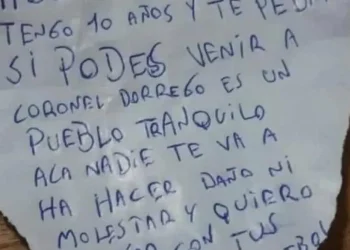 TENGO 10 AÑOS Y TE
SI PODES VENIR A
CORONEL DORREGO ES UN
PUEBLO TRANQUILO
ACA NADIE TE VA A
HA HACER DAÑO NI
MOLESTAR Y QUIERO
CON TUS